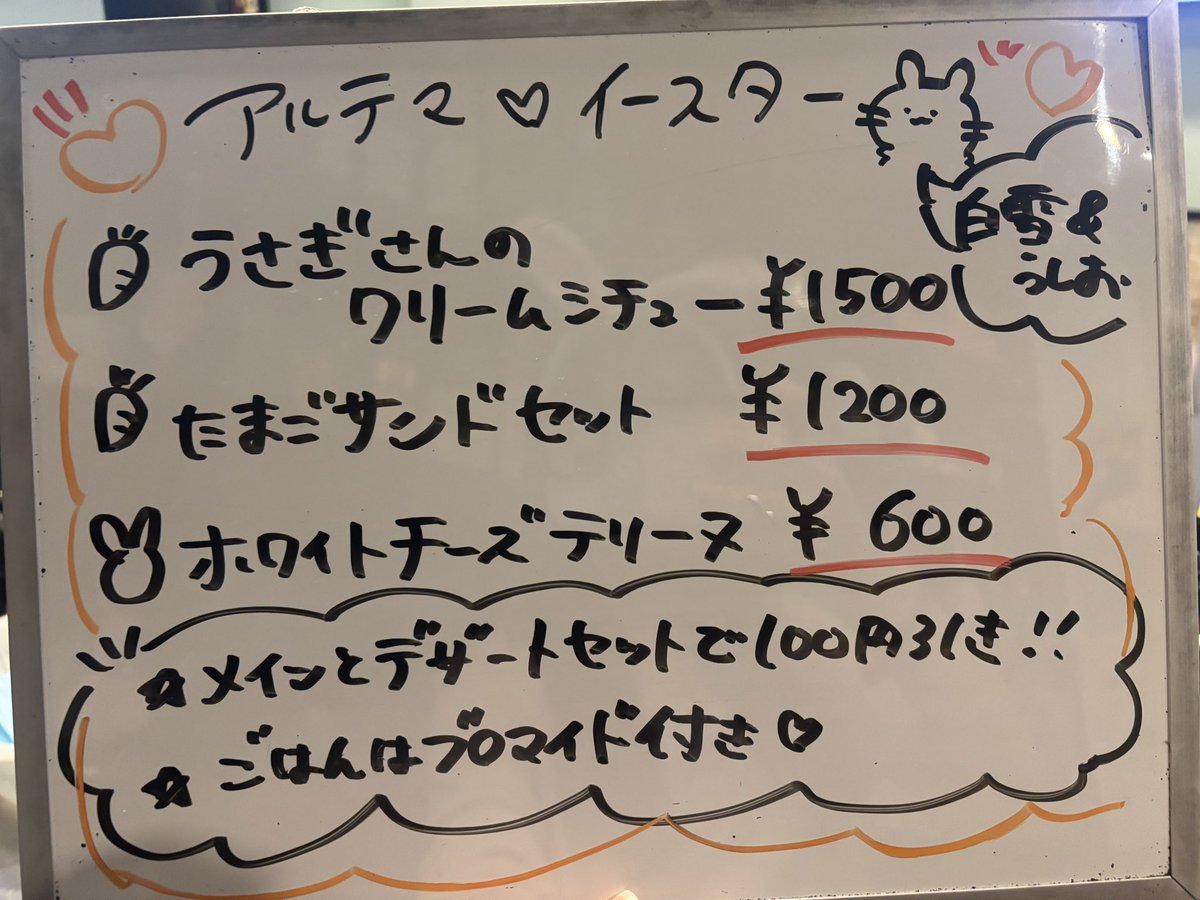 アルテマ♡イースター
白雪&
うしお
うさぎさんの
クリームシチュー ¥1500
たまごサンドセット ¥1200
ホワイトチーズテリーヌ ¥600
☆メインとデザートセットで100円引き!!
☆ごはんはブロマイド付き♡